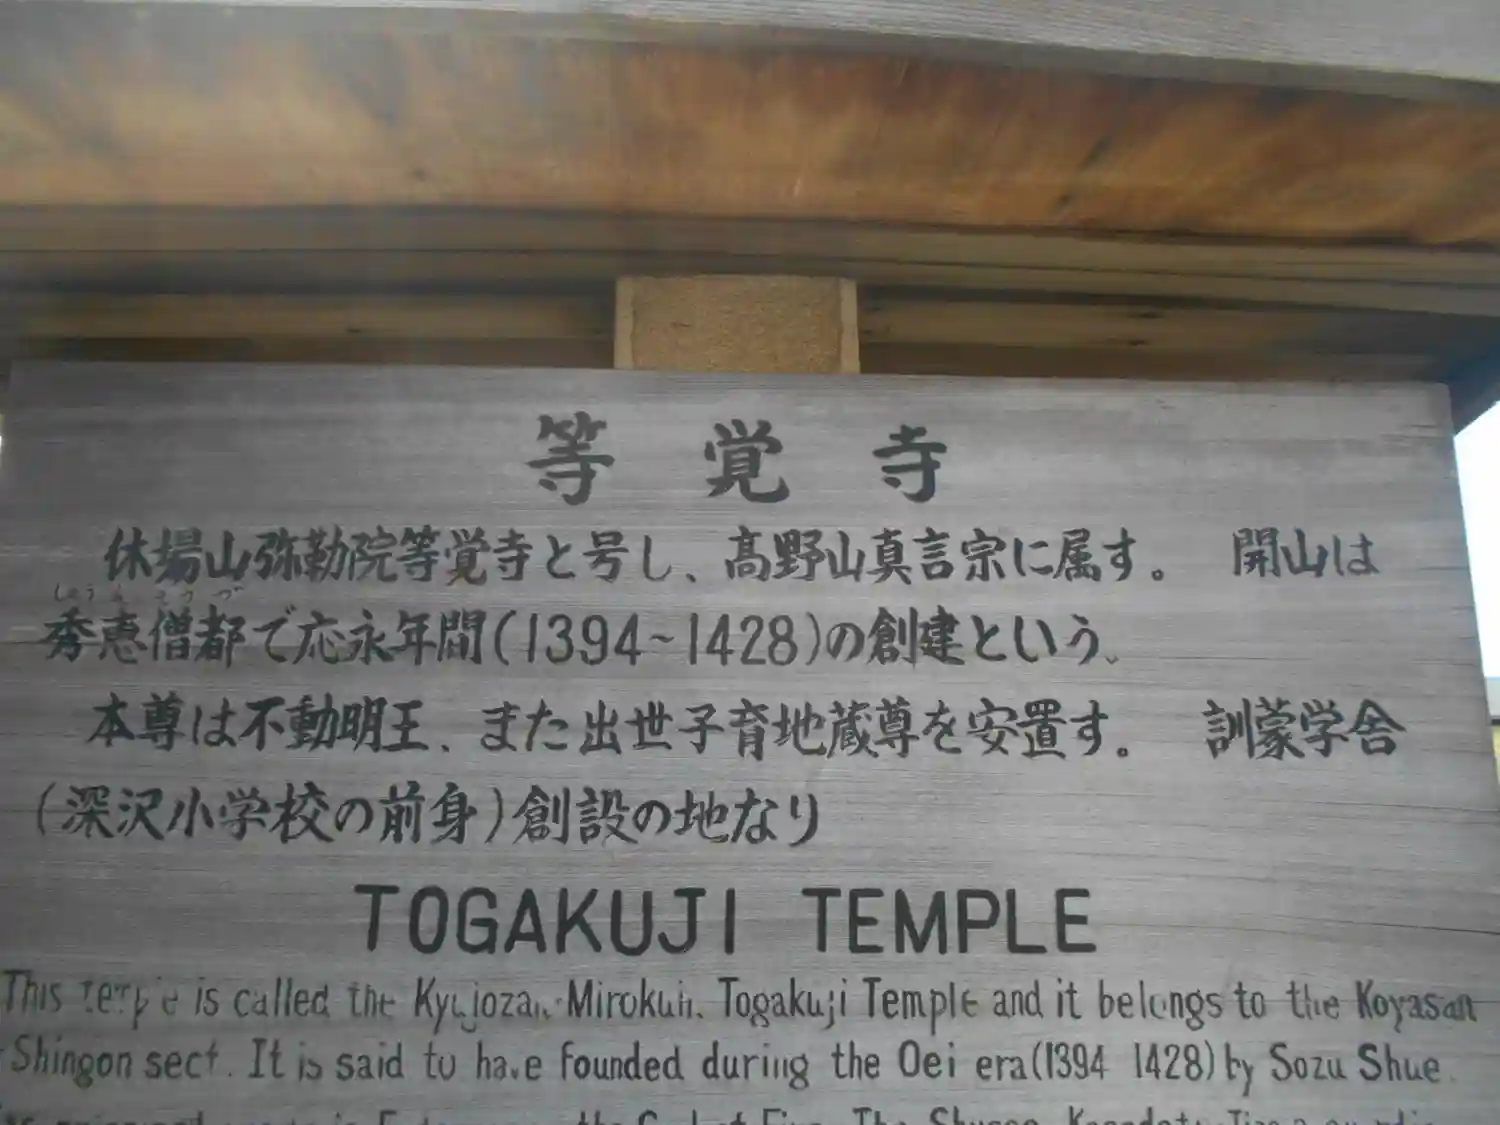 等覚寺
休場山弥勒院等覚寺と号し、高野山真言宗に属す。 開山は
秀恵僧都で応永年間(1394~1428)の創建という、
本尊は不動明王、また出世子育地蔵尊を安置す。 訓蒙学舎
(深沢小学校の前身)創設の地なり
TOGAKUJI TEMPLE
This temple is called the Kyujozan Mirokuin Togakuji Temple and it belongs to the Koyasan
Shingon sect. It is said to have founded during the Oei era(1394 1428) by Sozu Shue.